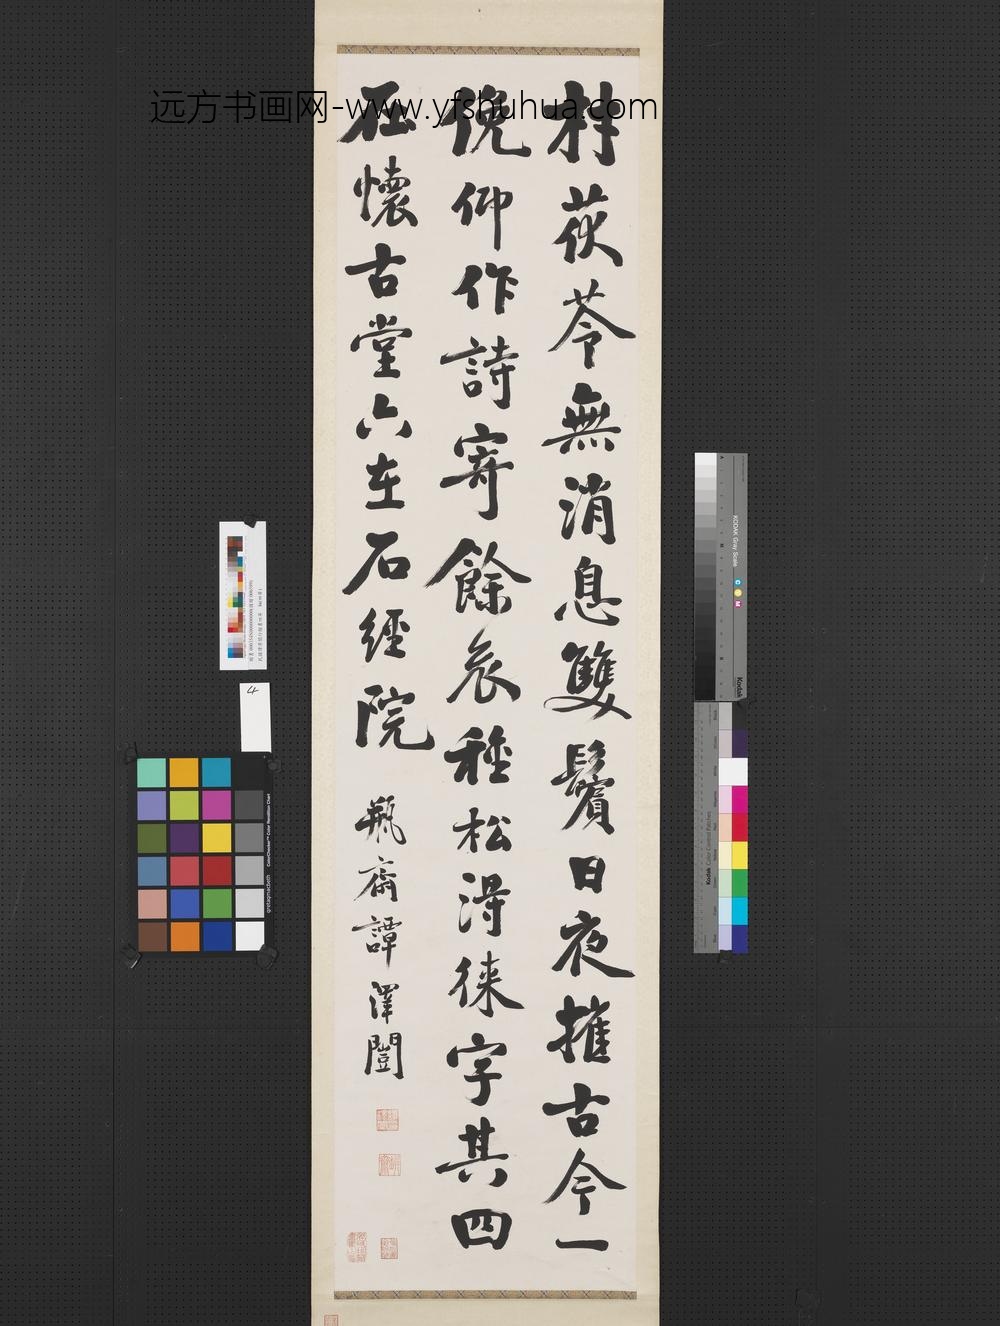 远方书画网-www.yfshuhua.com
材茯苓無消息雙鬢日夜摧古今一
俛仰作詩寄餘哀種松得徠字其四
在懷古堂六在石經院
瓶齋譚澤闓
KODAK Gray Scale
C
M
Kodak
Kodak Color Control Patches
ColorChecker Color Rendition Chart
gretagmacbeth
4